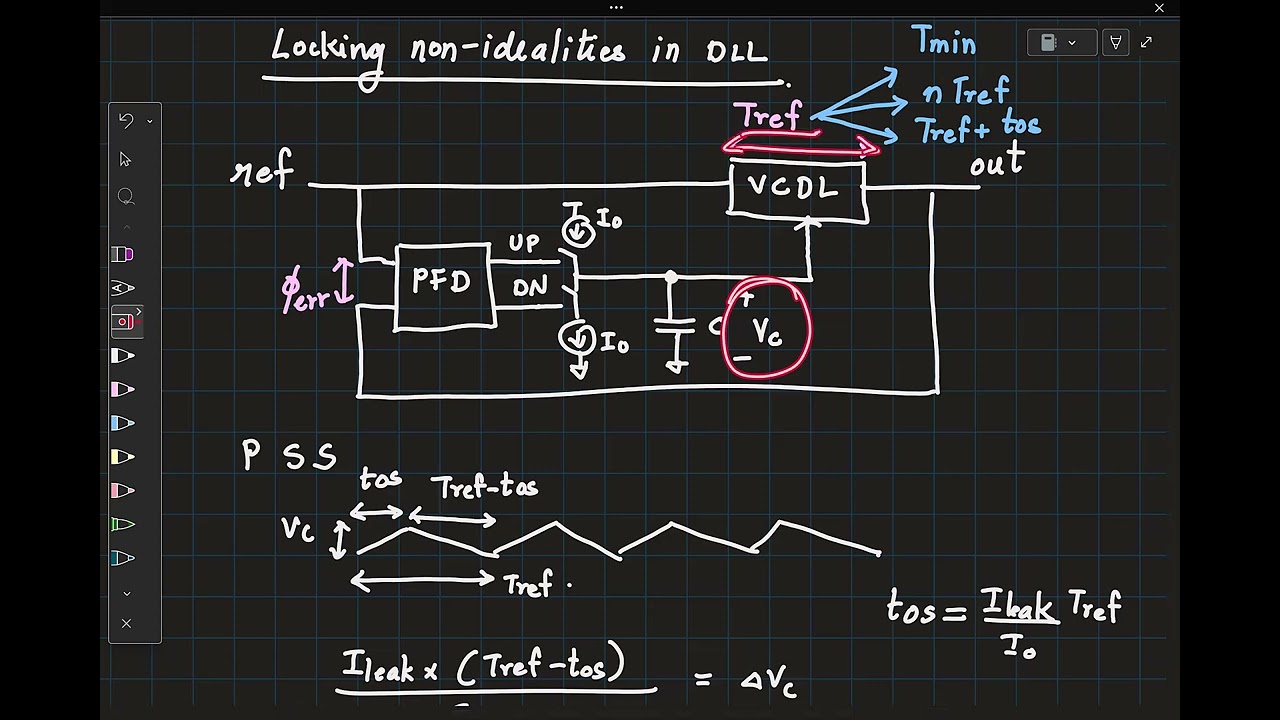 Locking non-idealities in DLL
Tmin
n Tref
Tref
Tref + tos
out
ref
VCDL
I₀
UP
PFD
DN
ϕerr
I₀
C
+
Vc
−
P S S
tos
Tref-tos
Vc
Tref .
tos = Ileak Tref
I₀
Ileak x (Tref-tos) = ΔVc